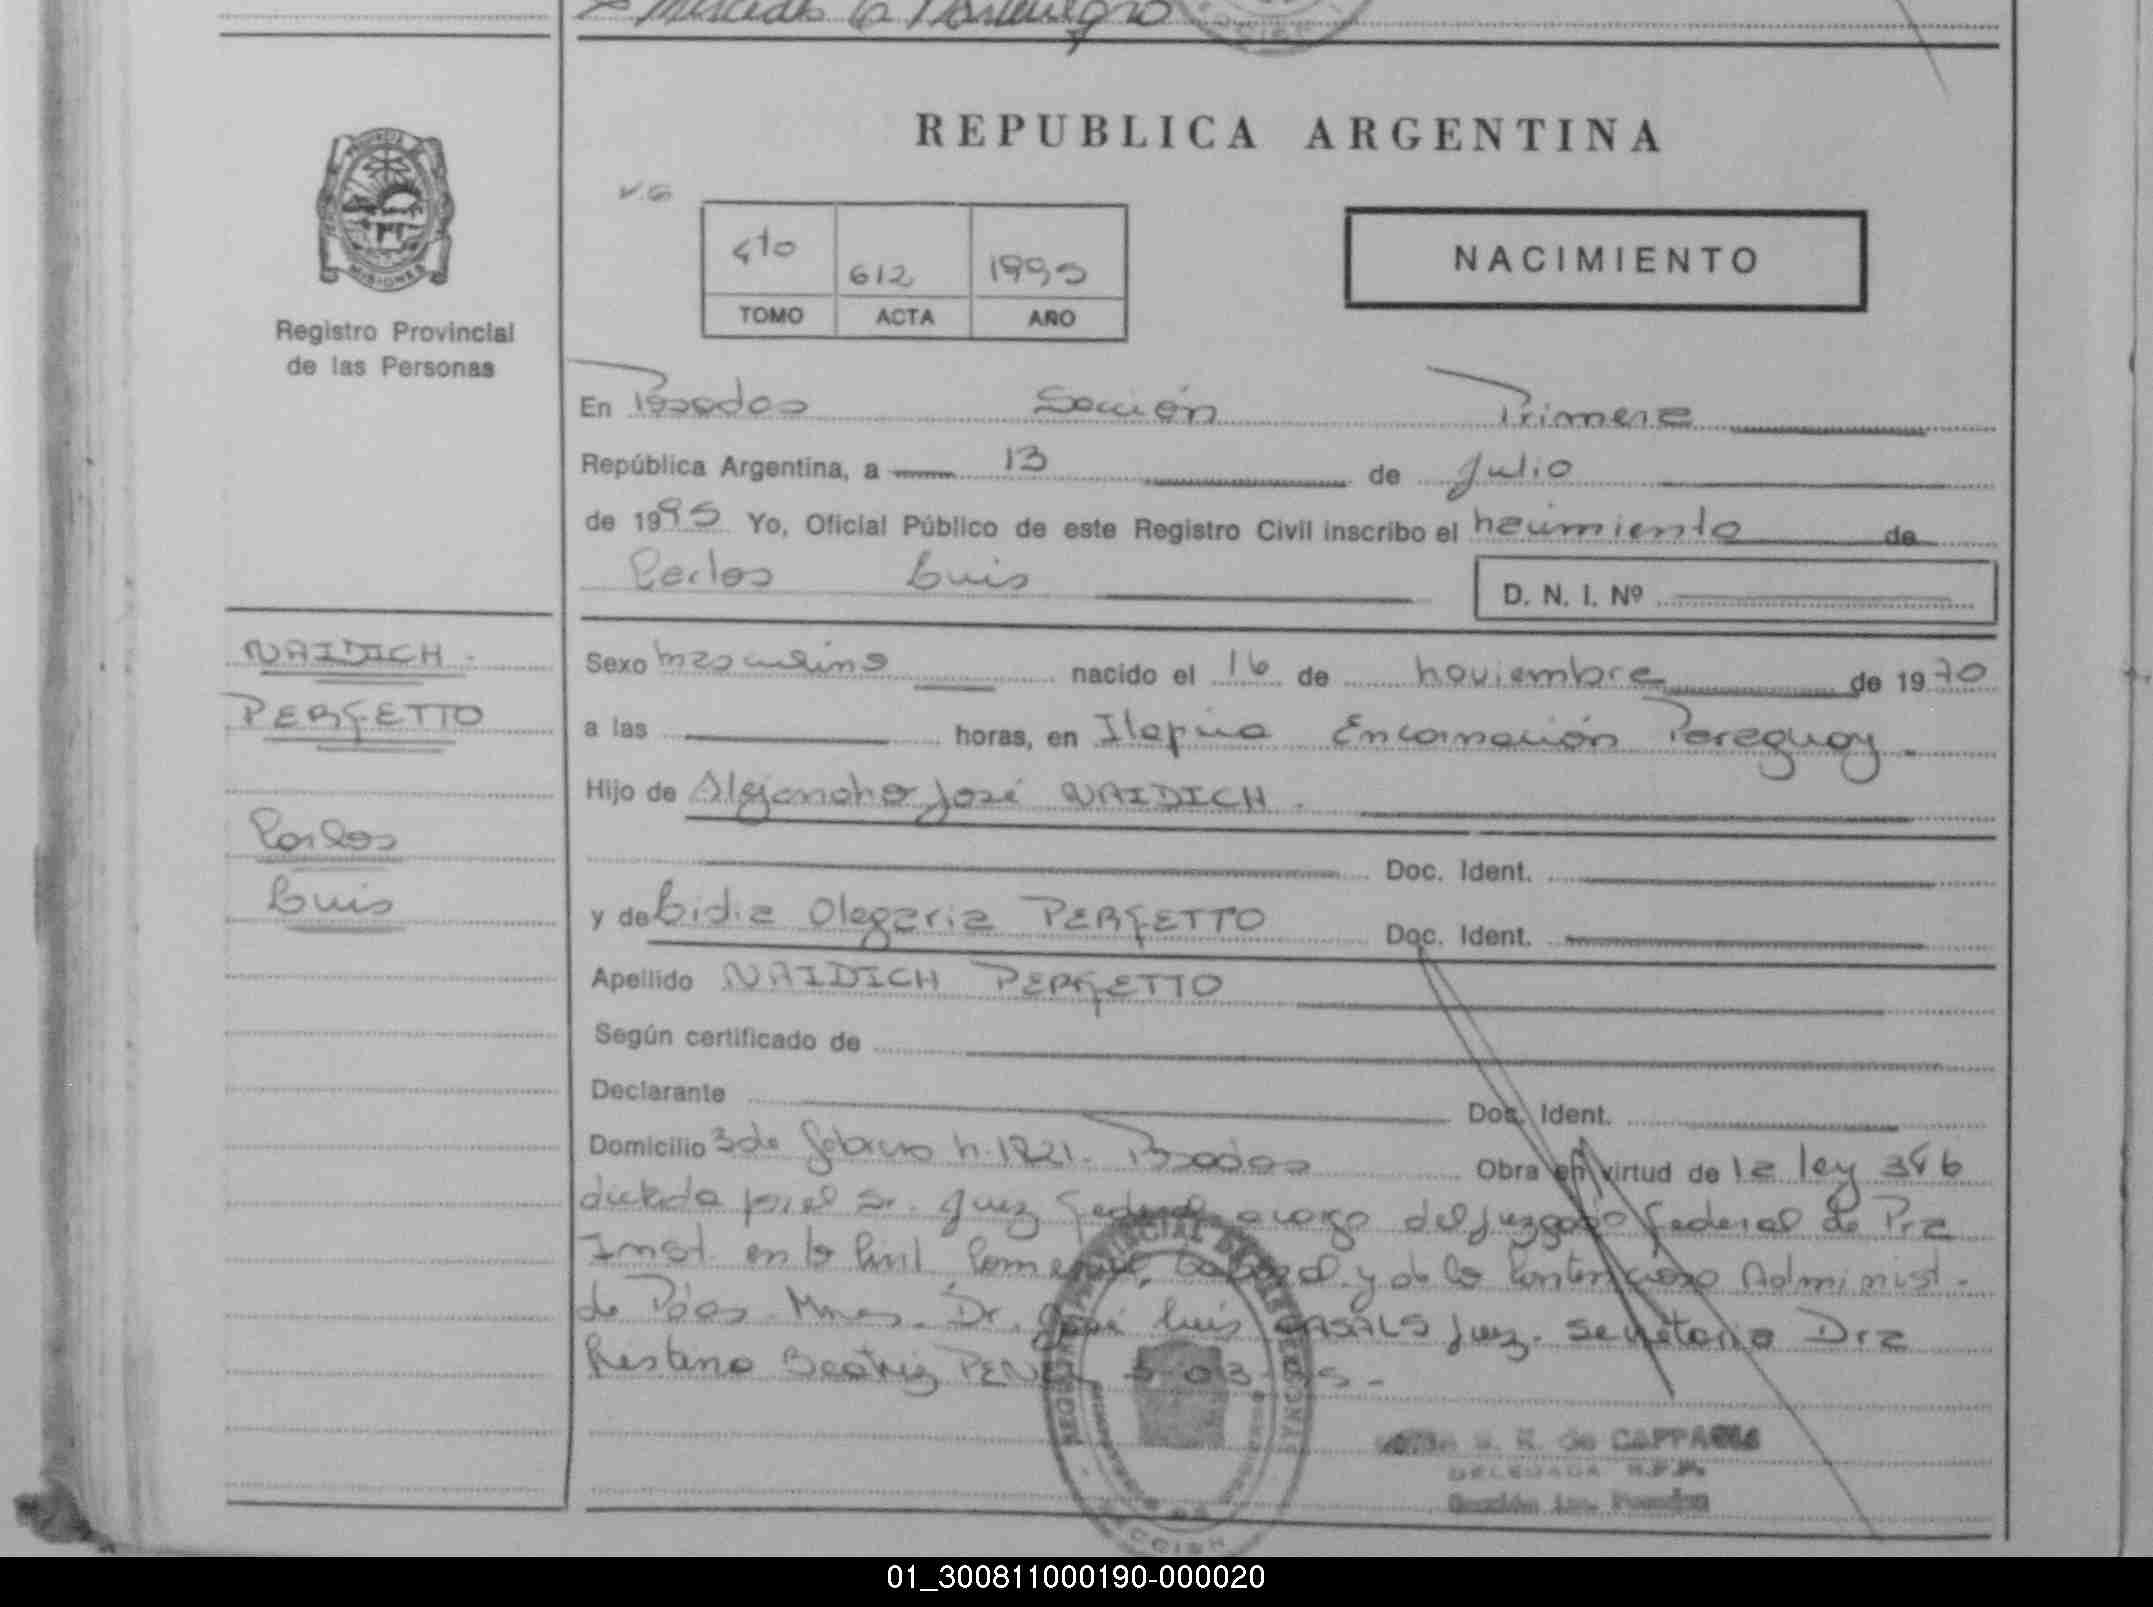 REPUBLICA ARGENTINA
PROVINCIA
MISIONES
Registro Provincial
de las Personas
V.G
4to 612 1995
TOMO ACTA AÑO
NACIMIENTO
En Posadas Sección Primera
República Argentina, a 13 de Julio
de 1995 Yo, Oficial Público de este Registro Civil inscribo el nacimiento de
Carlos Luis D. N. I. Nº
NAIDICH
PERFETTO
Carlos
Luis
Sexo masculino nacido el 16 de noviembre de 1970
a las horas, en Itapúa Encarnación Paraguay.
Hijo de Alejandro José NAIDICH.
Doc. Ident.
y de Lidia Olegaria PERFETTO Doc. Ident.
Apellido NAIDICH PERFETTO
Según certificado de
Declarante Doc. Ident.
Domicilio 3 de febrero n. 1821. Posadas Obra en virtud de la ley 346
dictada por el Sr. Juez Federal a cargo del Juzgado Federal de Pra
Inst. en lo Civil Comercial, Laboral y de lo Contencioso Administ.
de Pdas. Mnes. Dr. José Luis CASALS Juez. Secretaria Dra
Cristina Beatriz
de CAPPA
DELEGADA R.P.P.
Sección 1ra. Posadas
01_300811000190-000020